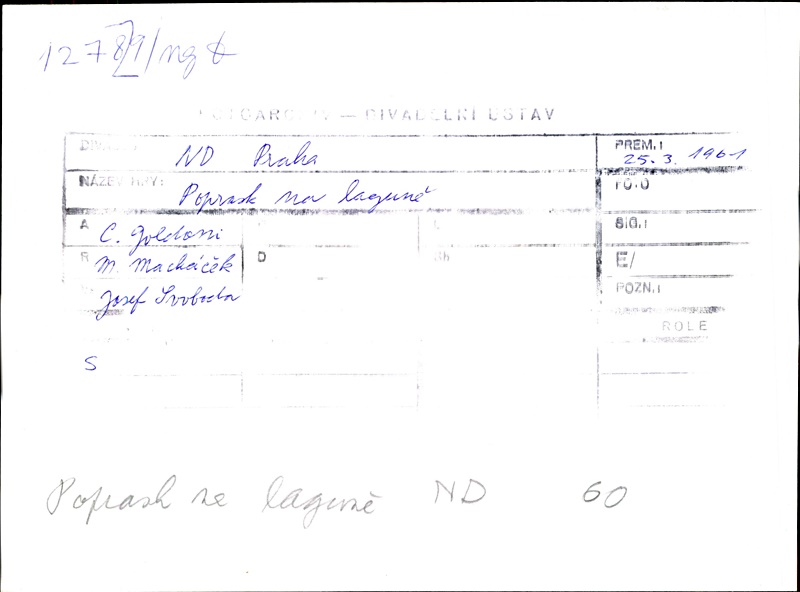 12789/neg
— DIVADELNÍ ÚSTAV
ND Praha
PREM.:
25. 3. 1961
NÁZEV HRY:
Poprask na laguně
FO:O
A
C. Goldoni
SIG.:
R
M. Macháček
D
Sh
E/
Josef Svoboda
POZN.:
ROLE
S
Poprask na laguně ND 60